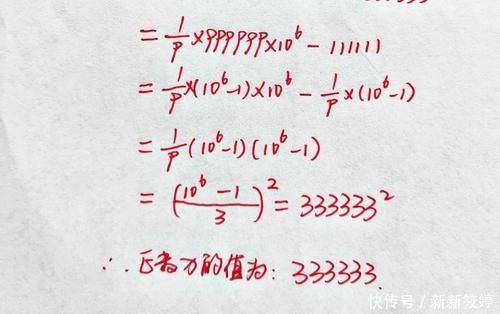 = 1/9 × 999999 × 10⁶ - 111111
= 1/9 × (10⁶-1) × 10⁶ - 1/9 × (10⁶-1)
= 1/9 (10⁶-1) (10⁶-1)
= ((10⁶ - 1)/3)² = 333333²
∴ 正整为的值为: 333333.
快传号 / 新新筱婷